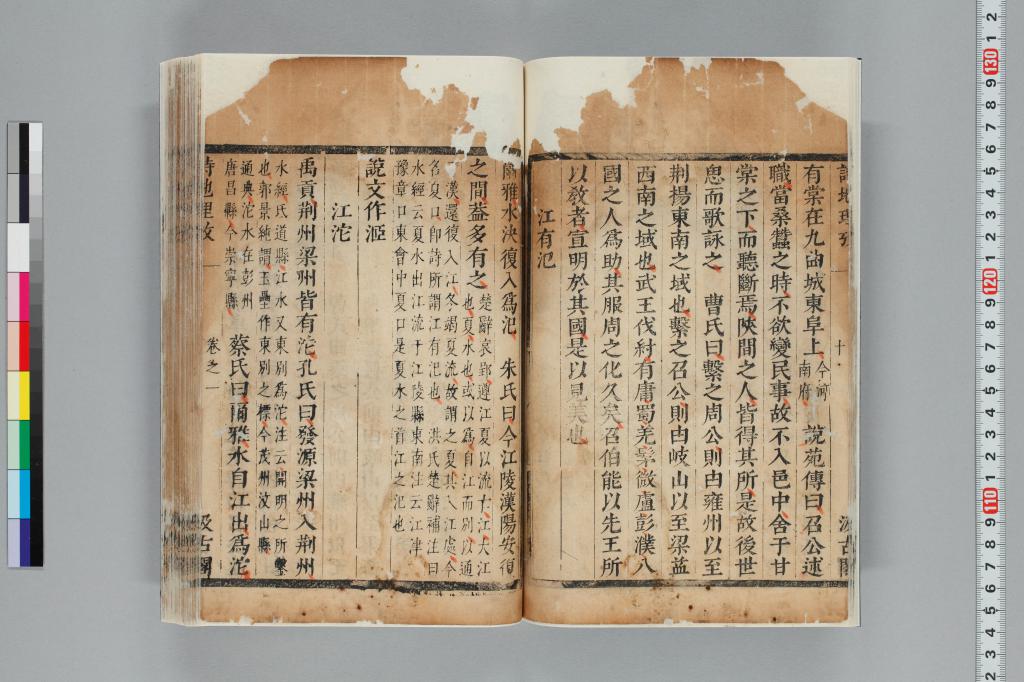 有棠在九曲城東阜上今河南府說苑傳曰召公述
職當桑蠶之時不欲變民事故不入邑中舍于甘
棠之下而聽斷焉陝間之人皆得其所是故後世
思而歌詠之　曹氏曰繫之周公則由雍州以至
荆揚東南之域也繫之召公則由岐山以至梁益
西南之域也武王伐紂有庸蜀羌髳微盧彭濮八
國之人爲助其服周之化久矣召伯能以先王所
以敎者宣明於其國是以見美也
江有汜
爾雅水決復入爲汜　朱氏曰今江陵漢陽安復
之間葢多有之楚辭哀郢遵江夏以流亡江大江
也夏水也或以爲自江而別以通
漢還復入江冬竭夏流故謂之夏其入江處今
名夏口卽詩所謂江有汜也　洪氏楚辭補注曰
水經云夏水出江流于江陵縣東南注云江津
豫章口東會中夏口是夏水之首江之汜也
說文作洍
江沱
禹貢荆州梁州皆有沱孔氏曰發源梁州入荆州
水經氐道縣江水又東別爲沱注云開明之所鑿
也郭景純謂玉壘作東別之標今茂州汶山縣
通典沱水在彭州
唐昌縣今崇寧縣　蔡氏曰爾雅水自江出爲沱
詩地理攷
卷之一
汲古閣